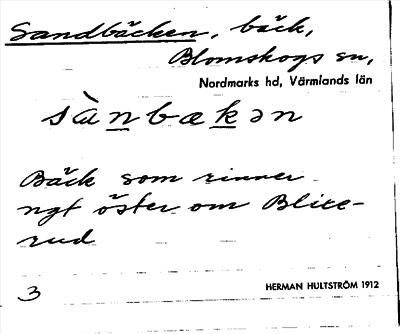 Sandbäcken, bäck,
Blomskogs sn,
Nordmarks hd, Värmlands län
sànbækən
Bäck som rinner
ngt öster om Blixe-
rud
3
HERMAN HULTSTRÖM 1912